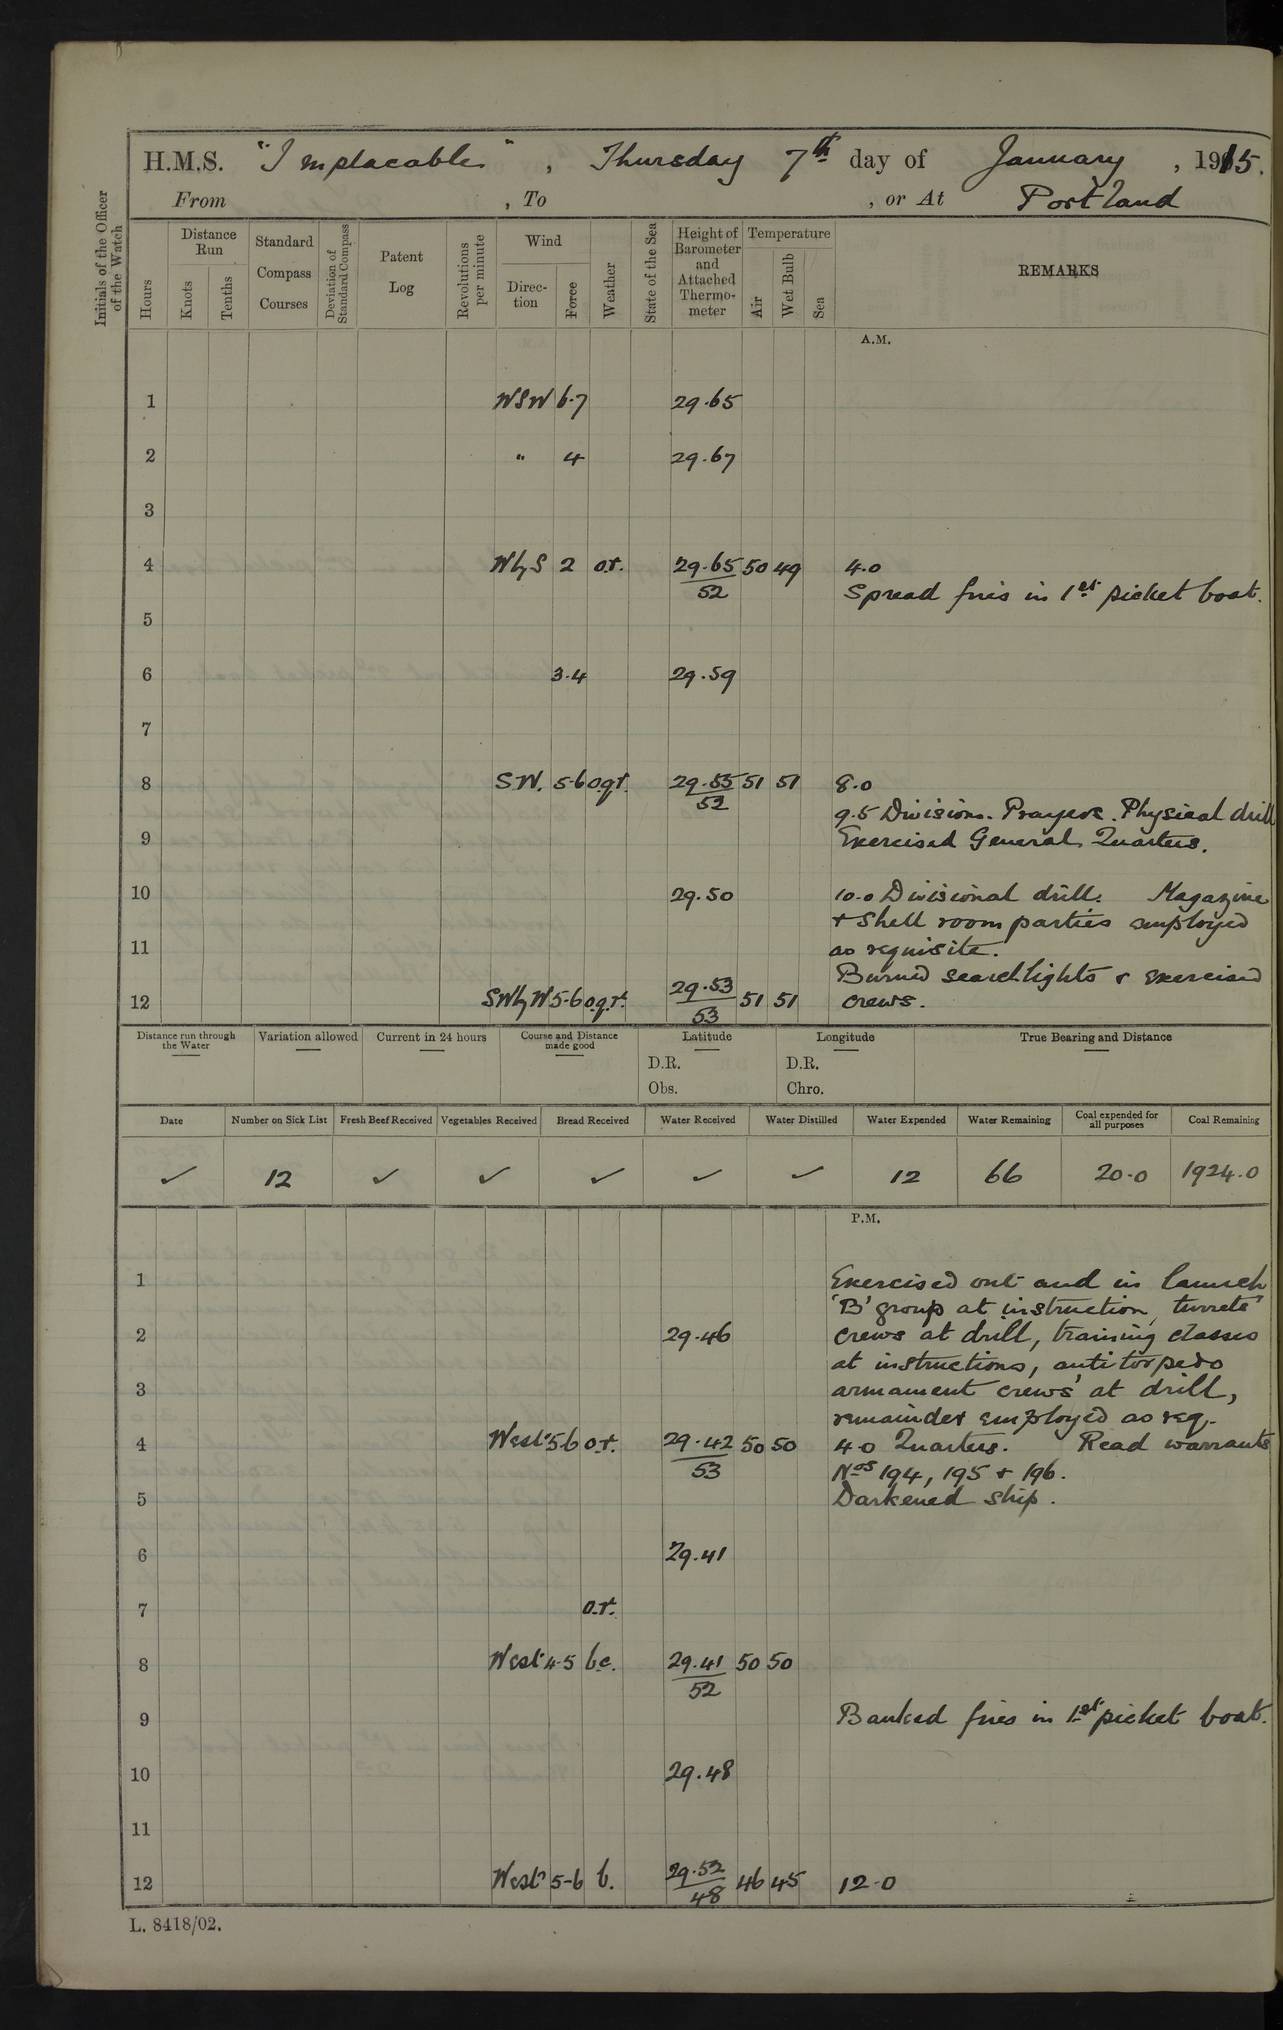 H.M.S. "Implacable", Thursday 7th day of January, 1915.
From , To , or At Portland
Initials of the Officer of the Watch
Hours
Distance Run
Knots
Tenths
Standard Compass Courses
Deviation of Standard Compass
Patent Log
Revolutions per minute
Wind
Direction
Force
Weather
State of the Sea
Height of Barometer and Attached Thermometer
Temperature
Air
Wet Bulb
Sea
REMARKS
A.M.
1 WSW 6.7 29.65
2 " 4 29.67
3
4 WbyS 2 o.r. 29.65/52 50 49 4.0
Spread fires in 1st picket boat.
5
6 3.4 29.59
7
8 S.W. 5-6 o.q.r. 29.55/52 51 51 8.0
9.5 Divisions. Prayers. Physical drill
9 Exercised General Quarters.
10 29.50 10.0 Divisional drill. Magazine
+ Shell room parties employed
11 as requisite.
Burned searchlights + exercised
12 SWbyW 5-6 o.q.r. 29.53/53 51 51 crews.
Distance run through the Water
Variation allowed
Current in 24 hours
Course and Distance made good
Latitude
D.R.
Obs.
Longitude
D.R.
Chro.
True Bearing and Distance
Date Number on Sick List Fresh Beef Received Vegetables Received Bread Received Water Received Water Distilled Water Expended Water Remaining Coal expended for all purposes Coal Remaining
✓ 12 ✓ ✓ ✓ ✓ ✓ 12 66 20.0 1924.0
P.M.
1 Exercised out and in launch
'B' group at instruction, turrets'
2 29.46 crews at drill, training classes
at instructions, anti torpedo
3 armament crews' at drill,
remainder employed as req.
4 West 5-6 o.r. 29.42/53 50 50 4.0 Quarters. Read warrants
Nos 194, 195 + 196.
5 Darkened ship.
6 29.41
7 o.r.
8 West 4-5 b.c. 29.41/52 50 50
9 Banked fires in 1st picket boat.
10 29.48
11
12 West 5-6 b. 29.52/48 46 45 12.0
L. 8418/02.